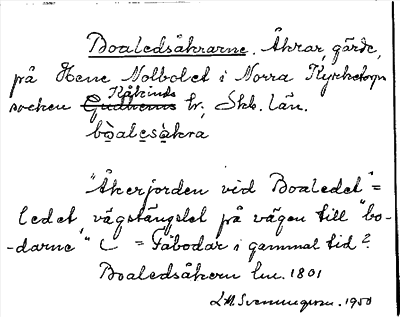 Boaledsåkrarne. Åkrar, gärde,
på Hene Nolbolet i Norra Kyrketorps
socken Gudhems Kåkinds hr, Skb. län.
bòalesàkra
"Åkerjorden vid Boaledet" =
ledet, vägstängslet på vägen till "bo-
-darne" = Fäbodar i gammal tid?
Boaledsåkern lm. 1801
Svenungsson. 1950